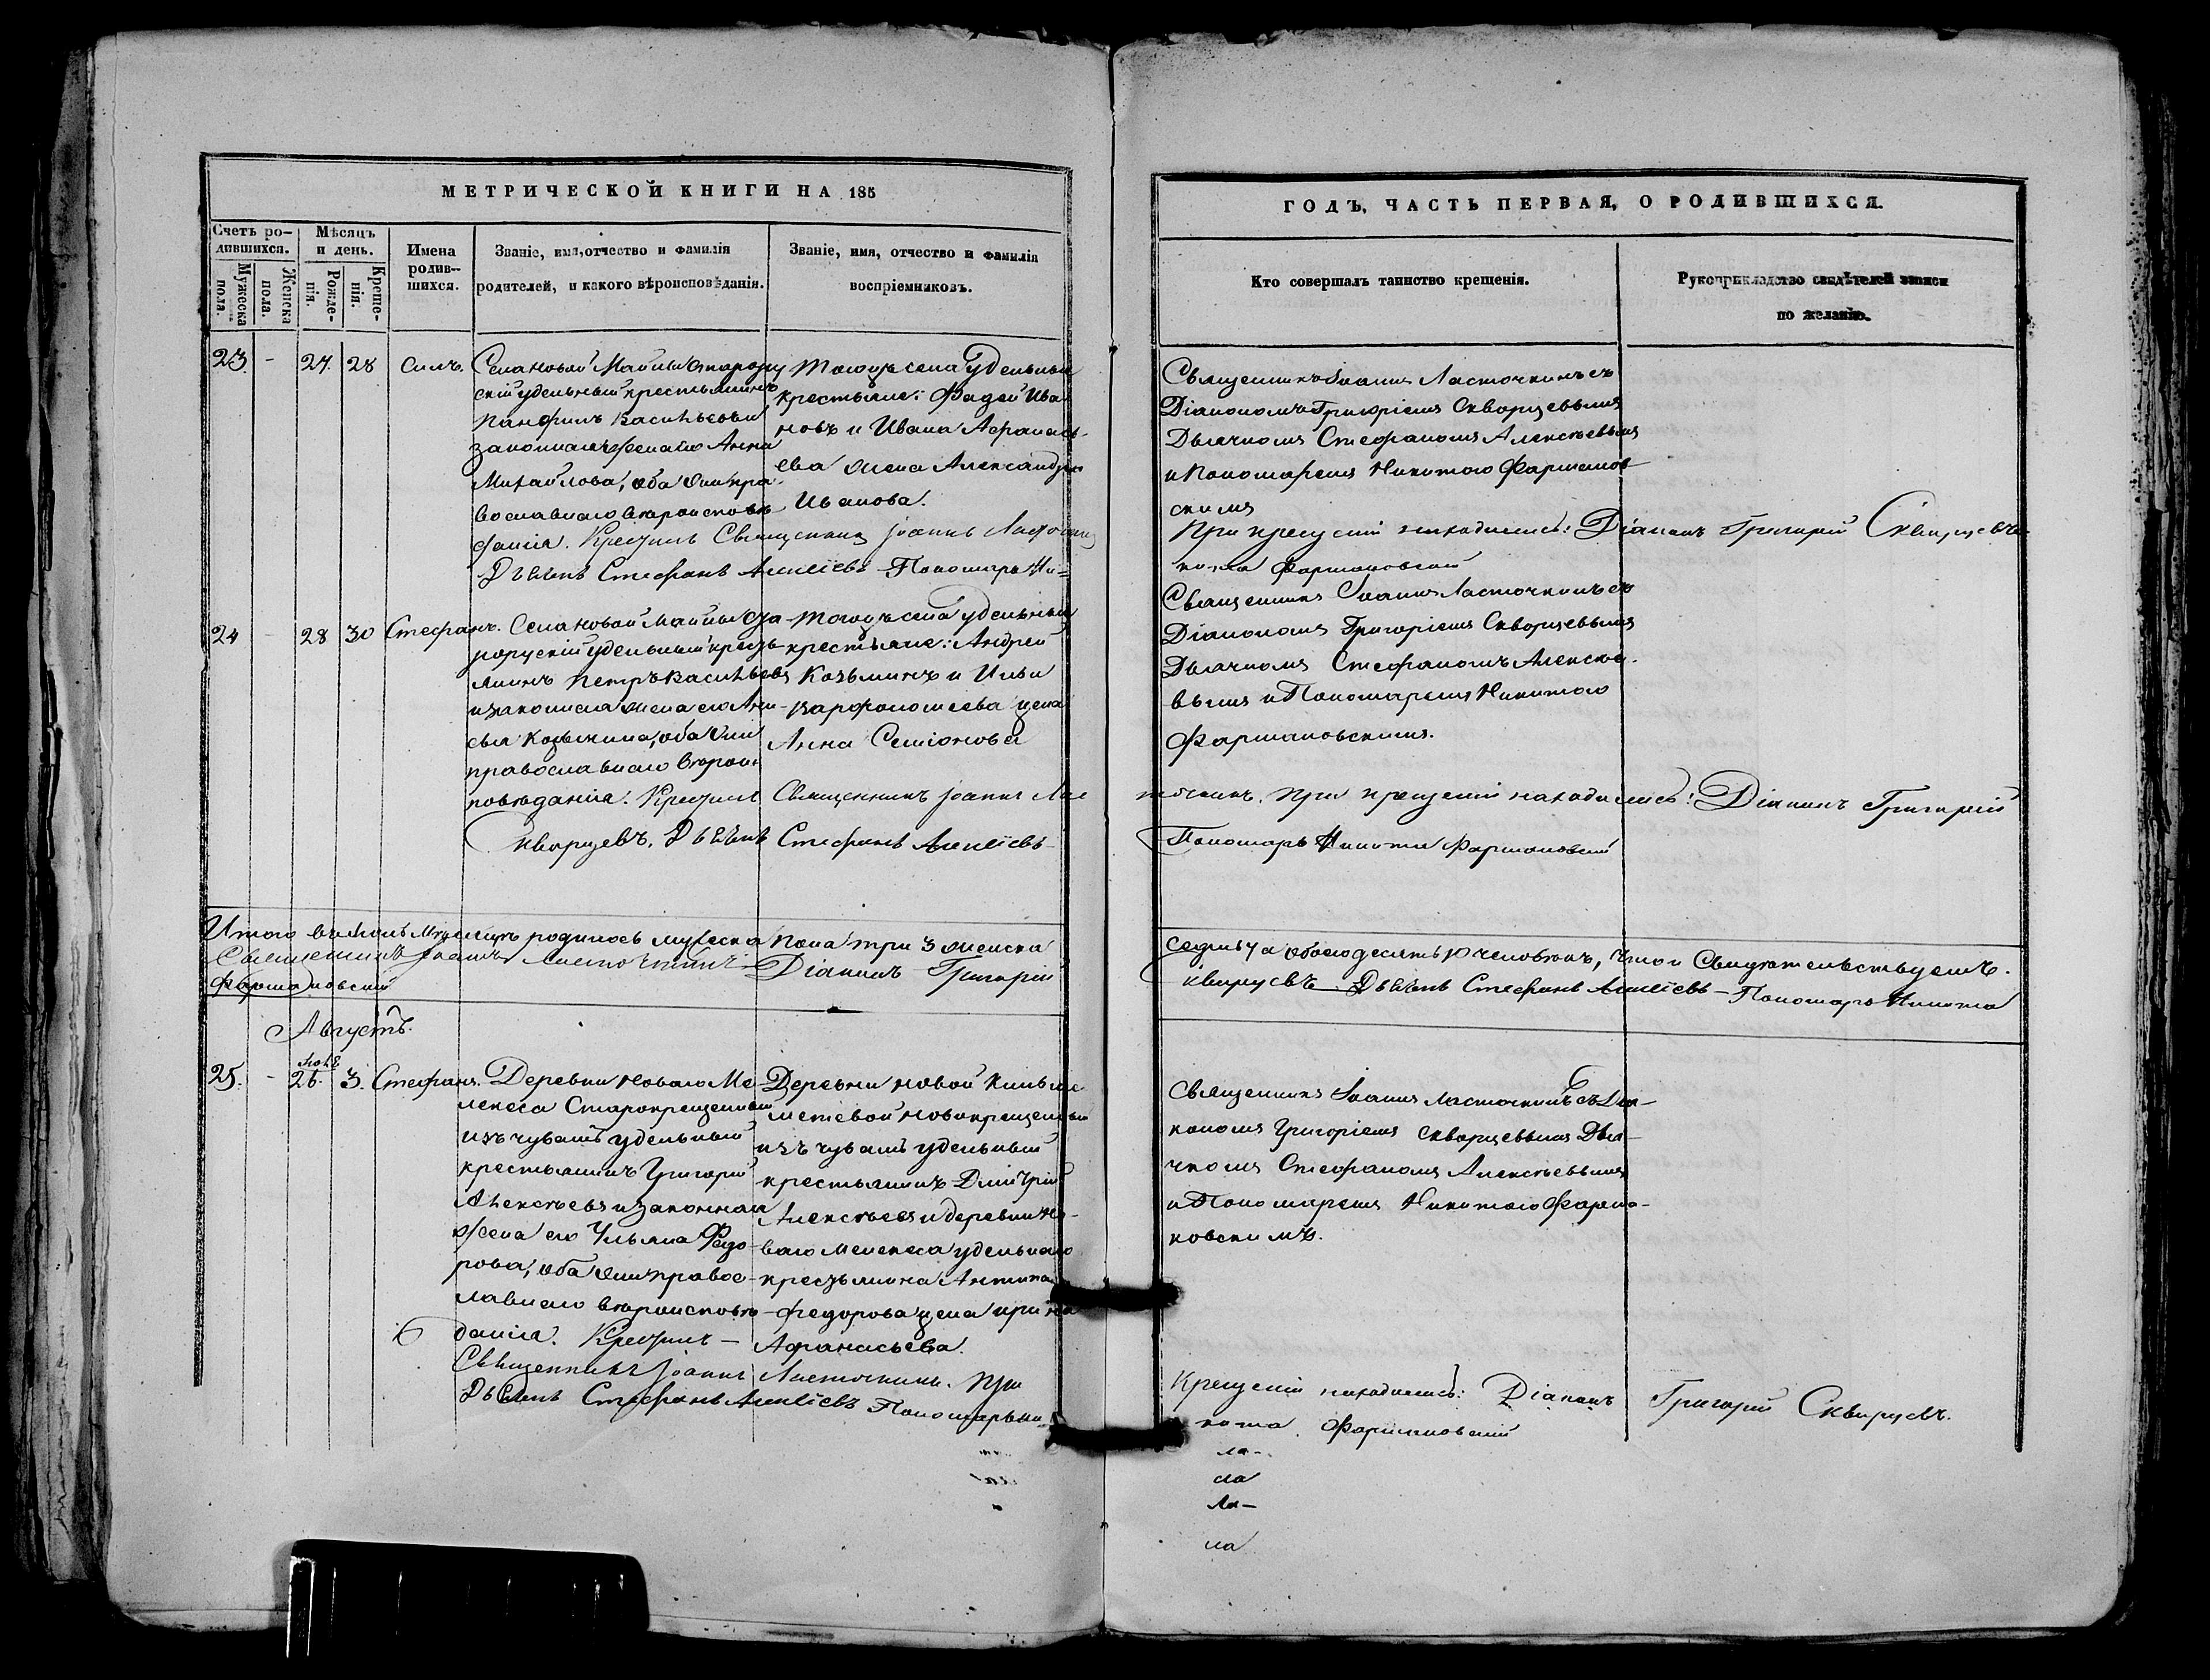 МЕТРИЧЕСКОЙ КНИГИ НА 185
Счетъ ро-
дившихся.
Мужеска
пола.
Женска
пола.
Мѣсяцъ
и день.
Рожде-
нія.
Креще-
нія.
Имена
родив-
шихся.
Званіе, имя, отчество и фамилія
родителей, и какого вѣроисповѣданія.
Званіе, имя, отчество и фамилія
воспріемниковъ.
23. - 27. 28 Силъ.
Села Новой Майны Старору
скій удельный крестьянинъ
Панфилъ Васильевъ и
законная жена его Анна
Михайлова, оба они пра-
вославнаго вѣроисповѣ
данія. Крестилъ Священникъ Іоаннъ Ласточкинъ
Дьячекъ Стефанъ Алексіевъ Пономарь Ни=
Тогожъ села удельные
крестьяне: Фадей Ива
новъ и Ивана Афанась-
ева жена Александра
Иванова.
24 - 28 30 Стефанъ.
Села Новой Майны Ста-
рорускій удельный кресть-
янинъ Петръ Васильевъ
и законная жена его Ани-
сья Козьмина, оба они
православнаго вѣроис
повѣданія. Крестилъ Священникъ Іоаннъ Лас
Скворцевъ. Дьячекъ Стефанъ Алексіевъ-
Тогожъ села удельные
крестьяне: Андрей
Козьминъ и Ильи
Варфоломеева жена
Анна Семіонова
Итого въ Іюлѣ мѣсяцѣ родилось мужеска пола три 3 женска
Священникъ Іоаннъ Ласточкинъ Діаконъ Григорій
Фармаковскій
Августъ.
25. - Іюля 26. 3. Стефанъ.
Деревни Новаго Ме-
лекеса Старокрещенный
изъ чувашъ удельный
крестьянинъ Григорій
Алексѣевъ и законная
жена его Ульяна Федо-
рова, оба они правос-
лавнаго вѣроисповѣ-
данія. Крестилъ -
Священникъ Іоаннъ Ласточкинъ. При
Дьячекъ Стефанъ Алексіевъ Пономарь Ни=
Деревни Новой
новокрещеный
изъ чувашъ удельный
крестьянинъ Дмитрій
Алексѣевъ и деревни Но-
ваго Мелекеса удельнаго
крестьянина Антипа
Федорова жена Ирина
Афанасьева.
ГОДЪ, ЧАСТЬ ПЕРВАЯ, О РОДИВШИХСЯ.
Кто совершалъ таинство крещенія.
Рукоприкладство свидѣтелей записи
по желанію.
Священникъ Іоаннъ Ласточкинъ съ
Діакономъ Григоріемъ Скворцевымъ
Дьячкомъ Стефаномъ Алексѣевымъ
и Пономаремъ Никитою Фармаков
скимъ
При крещеніи находились: Діаконъ Григорій Скворцевъ
кита Фармаковскій
Священникъ Іоаннъ Ласточкинъ съ
Діакономъ Григоріемъ Скворцевымъ
Дьячкомъ Стефаномъ Алексѣе-
вымъ и Пономаремъ Никитою
Фармаковскимъ.
точкинъ. При крещеніи находились: Діаконъ Григорій
Пономарь Никита Фармаковскій
седмь 7 а обоего десять 10 человѣкъ, что и Свидѣтельствуемъ.
Скворцевъ Дьячекъ Стефанъ Алексіевъ - Пономарь Никита
Священникъ Іоаннъ Ласточкинъ съ Діа-
кономъ Григоріемъ Скворцевымъ Дья-
чкомъ Стефаномъ Алексѣевымъ
и Пономаремъ Никитою Фарма-
ковскимъ.
Крещеніи находились: Діаконъ Григорій Скворцевъ.
кита Фармаковскій
ла-
ла
ла-
ла